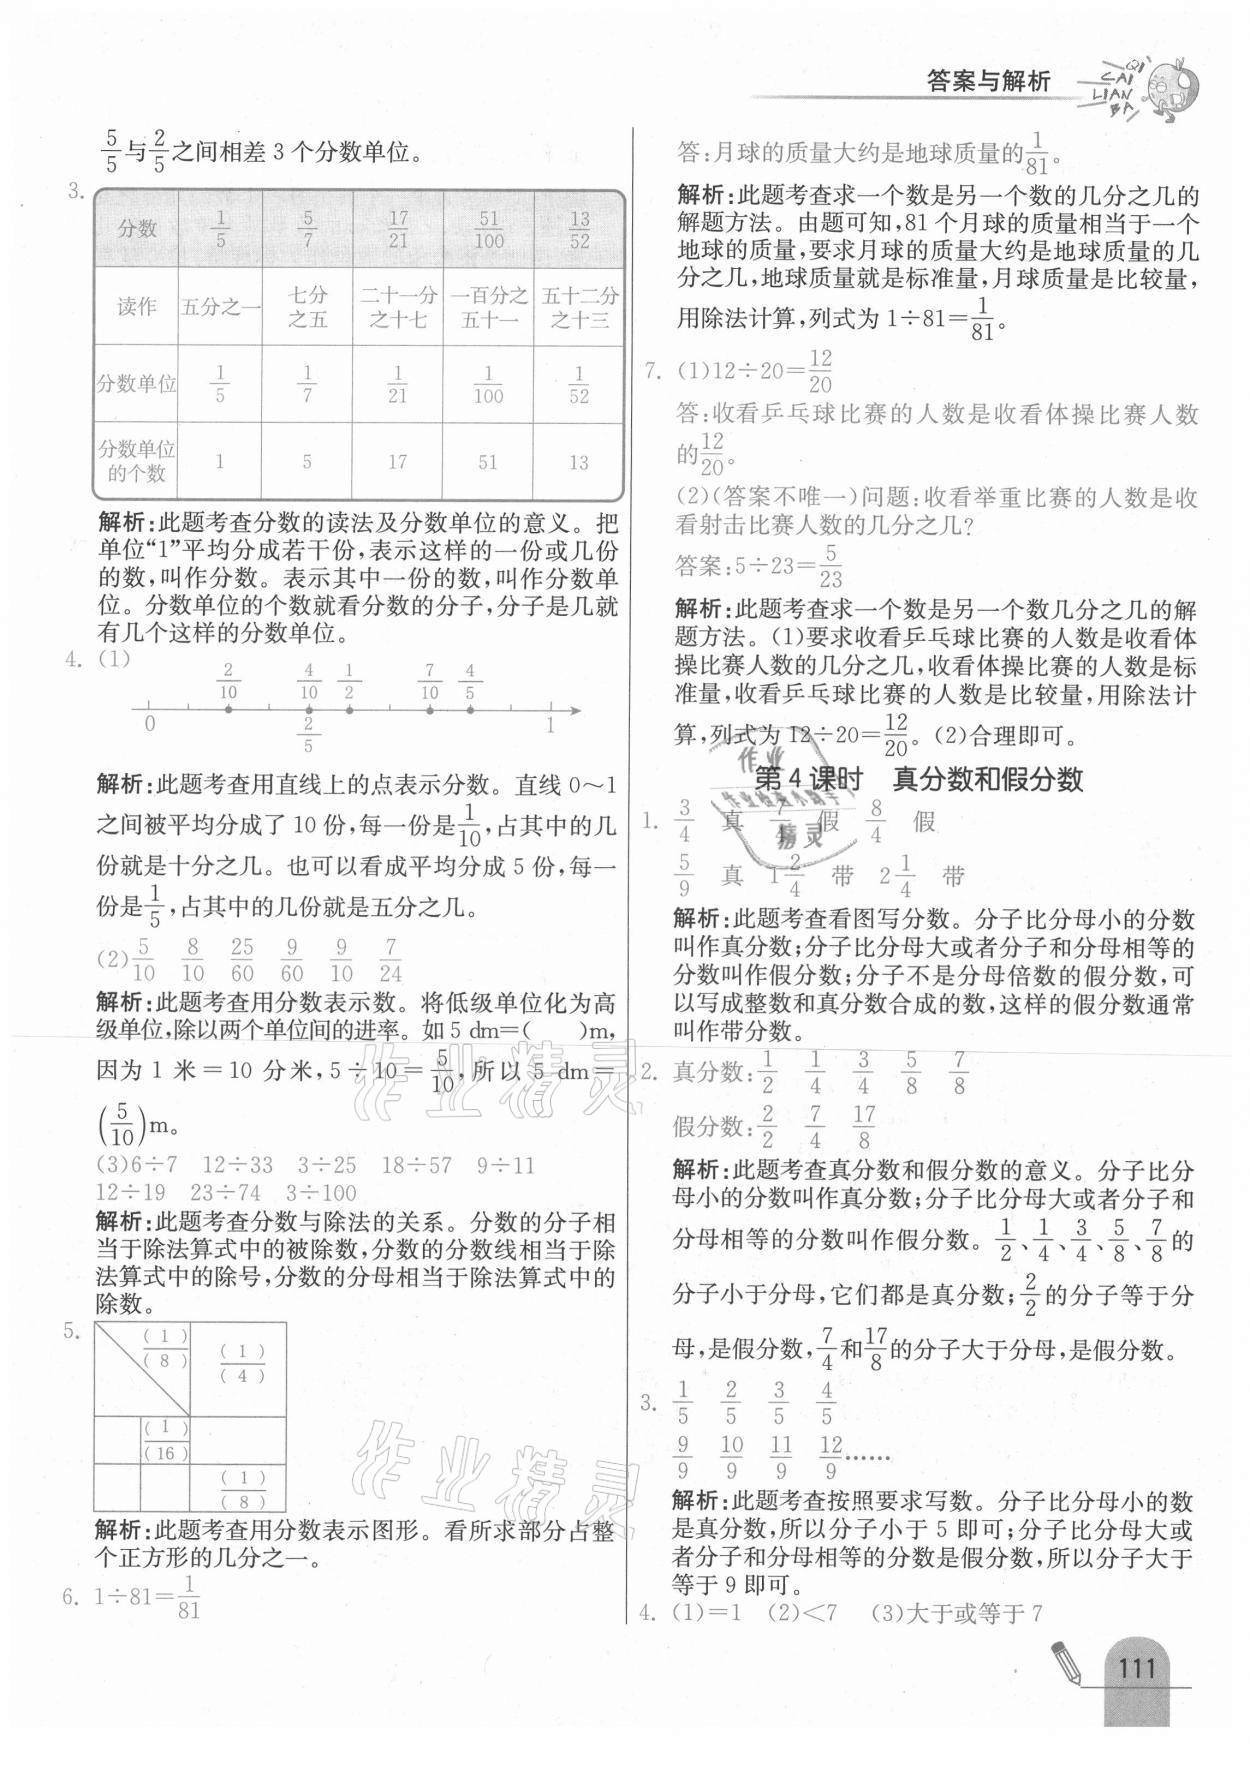 答案与解析
QI CAI LIAN BA
5/5与2/5之间相差3个分数单位。
3.
分数 1/5 5/7 17/21 51/100 13/52
读作 五分之一 七分之五 二十一分之十七 一百分之五十一 五十二分之十三
分数单位 1/5 1/7 1/21 1/100 1/52
分数单位的个数 1 5 17 51 13
解析:此题考查分数的读法及分数单位的意义。把
单位“1”平均分成若干份,表示这样的一份或几份
的数,叫作分数。表示其中一份的数,叫作分数单
位。分数单位的个数就看分数的分子,分子是几就
有几个这样的分数单位。
4. (1)
2/10 4/10 1/2 7/10 4/5
0 2/5 1
解析:此题考查用直线上的点表示分数。直线0～1
之间被平均分成了10份,每一份是1/10,占其中的几
份就是十分之几。也可以看成平均分成5份,每一
份是1/5,占其中的几份就是五分之几。
(2)5/10 8/10 25/60 9/60 9/10 7/24
解析:此题考查用分数表示数。将低级单位化为高
级单位,除以两个单位间的进率。如5 dm=(  )m,
因为1米=10分米,5÷10=5/10,所以5 dm=
(5/10)m。
(3)6÷7 12÷33 3÷25 18÷57 9÷11
12÷19 23÷74 3÷100
解析:此题考查分数与除法的关系。分数的分子相
当于除法算式中的被除数,分数的分数线相当于除
法算式中的除号,分数的分母相当于除法算式中的
除数。
5.
(1)/(8) (1)/(4)
(1)/(16)
(1)/(8)
解析:此题考查用分数表示图形。看所求部分占整
个正方形的几分之一。
6. 1÷81=1/81
答:月球的质量大约是地球质量的1/81。
解析:此题考查求一个数是另一个数的几分之几的
解题方法。由题可知,81个月球的质量相当于一个
地球的质量,要求月球的质量大约是地球质量的几
分之几,地球质量就是标准量,月球质量是比较量,
用除法计算,列式为1÷81=1/81。
7. (1)12÷20=12/20
答:收看乒乓球比赛的人数是收看体操比赛人数
的12/20。
(2)(答案不唯一)问题:收看举重比赛的人数是收
看射击比赛人数的几分之几?
答案:5÷23=5/23
解析:此题考查求一个数是另一个数几分之几的解
题方法。(1)要求收看乒乓球比赛的人数是收看体
操比赛人数的几分之几,收看体操比赛的人数是标
准量,收看乒乓球比赛的人数是比较量,用除法计
算,列式为12÷20=12/20。(2)合理即可。
第4课时 真分数和假分数
1. 3/4 真 7/4 假 8/4 假
5/9 真 1 2/4 带 2 1/4 带
解析:此题考查看图写分数。分子比分母小的分数
叫作真分数;分子比分母大或者分子和分母相等的
分数叫作假分数;分子不是分母倍数的假分数,可
以写成整数和真分数合成的数,这样的假分数通常
叫作带分数。
2. 真分数:1/2 1/4 3/4 5/8 7/8
假分数:2/2 7/4 17/8
解析:此题考查真分数和假分数的意义。分子比分
母小的分数叫作真分数;分子比分母大或者分子和
分母相等的分数叫作假分数。1/2、1/4、3/4、5/8、7/8的
分子小于分母,它们都是真分数;2/2的分子等于分
母,是假分数,7/4和17/8的分子大于分母,是假分数。
3. 1/5 2/5 3/5 4/5
9/9 10/9 11/9 12/9……
解析:此题考查按照要求写数。分子比分母小的数
是真分数,所以分子小于5即可;分子比分母大或
者分子和分母相等的分数是假分数,所以分子大于
等于9即可。
4. (1)=1 (2)<7 (3)大于或等于7
111
作业精灵
作业精灵